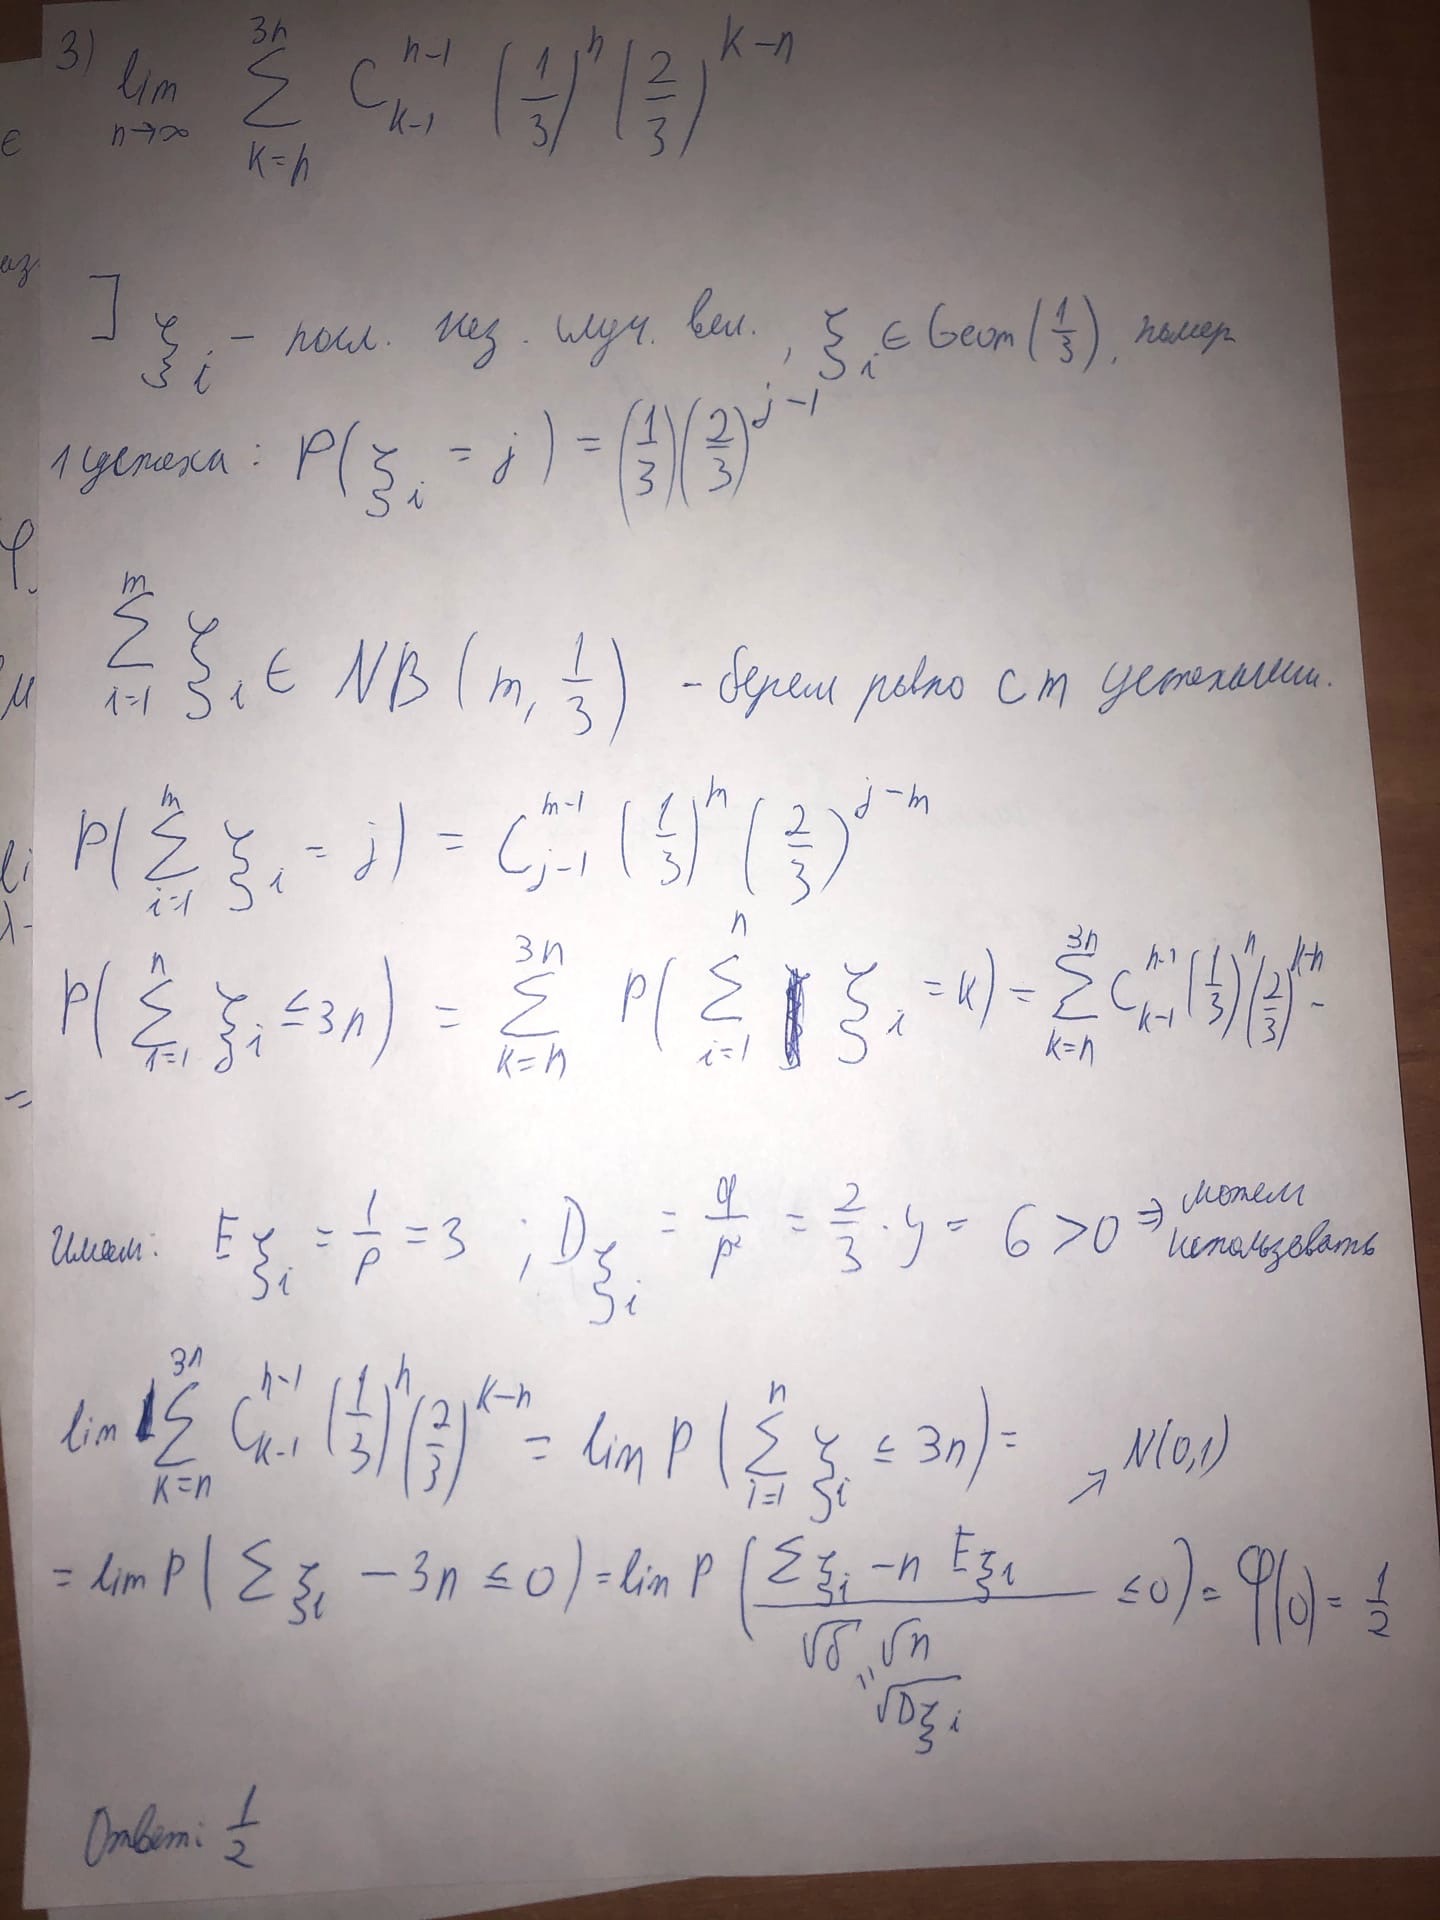 3) lim n→∞ ∑ k=n 3n C_{k-1}^{n-1} (1/3)^n (2/3)^{k-n}
] ξ_i – посл. нез. случ. вел., ξ_i ∈ Geom(1/3), номер
1 успеха: P(ξ_i = j) = (1/3)(2/3)^{j-1}
∑_{i=1}^{m} ξ_i ∈ NB(m, 1/3) – берем ровно с m успехами.
P(∑_{i=1}^{m} ξ_i = j) = C_{j-1}^{m-1} (1/3)^m (2/3)^{j-m}
P(∑_{i=1}^{n} ξ_i ≤ 3n) = ∑_{k=n}^{3n} P(∑_{i=1}^{n} ξ_i = k) = ∑_{k=n}^{3n} C_{k-1}^{n-1} (1/3)^n (2/3)^{k-n} -
Имеем: Eξ_i = 1/p = 3 ; Dξ_i = q/p² = 2/3 · 9 = 6 > 0 ⇒ можем
использовать
lim ∑_{k=n}^{3n} C_{k-1}^{n-1} (1/3)^n (2/3)^{k-n} = lim P(∑_{i=1}^{n} ξ_i ≤ 3n) =
↗ N(0,1)
= lim P(∑ ξ_i – 3n ≤ 0) = lim P((∑ξ_i – n Eξ_i)/(√6 √n) ≤ 0) = φ(0) = 1/2
"
√Dξ_i
Ответ: 1/2